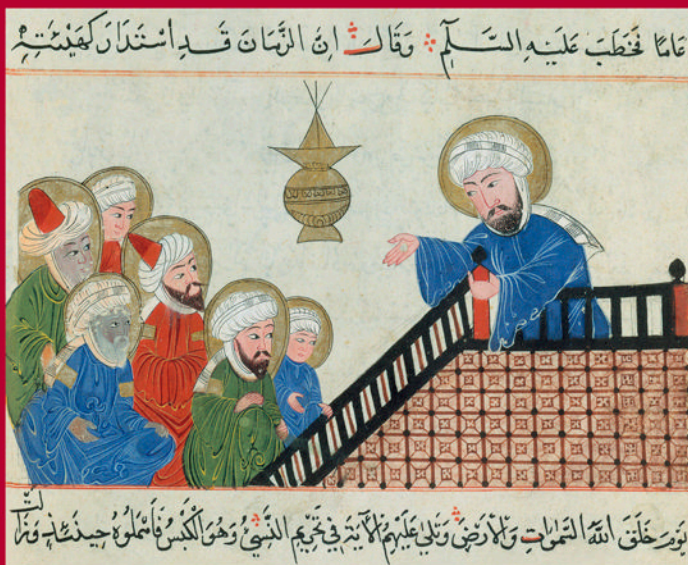 عاما فخطب عليه السلم وقال ان الزمان قد استدار كهيئته
يوم خلق الله السموات والارض وتلى عليهم الآية في تحريم النسئ وهو الكبس فاهملوه حينئذ وزالت